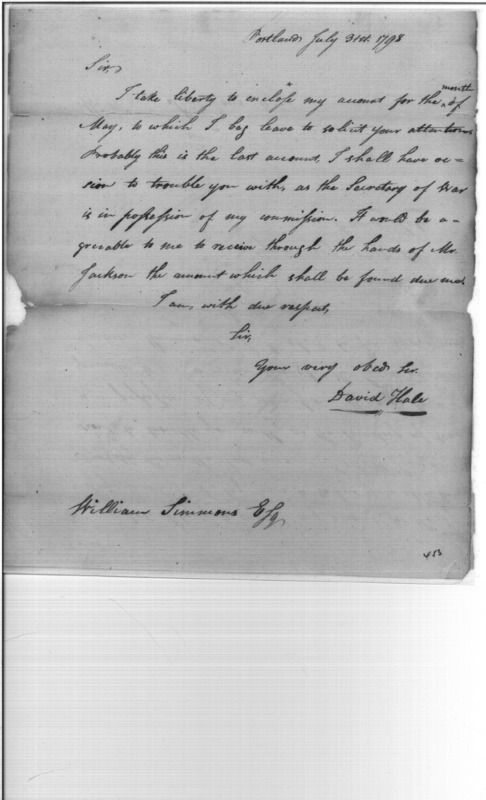 Portland July 31st. 1798
Sir,
I take liberty to enclose my account for the month of
May, to which I beg leave to solicit your attention.
Probably this is the last account, I shall have oc-
sion to trouble you with, as the Secretary of War
is in possession of my commission. It would be a-
greeable to me to receive through the hands of Mr.
Jackson the amount which shall be found due me.
I am, with due respect,
Sir,
Your very obed. Ser.
David Hale
William Simmons Esq.
453